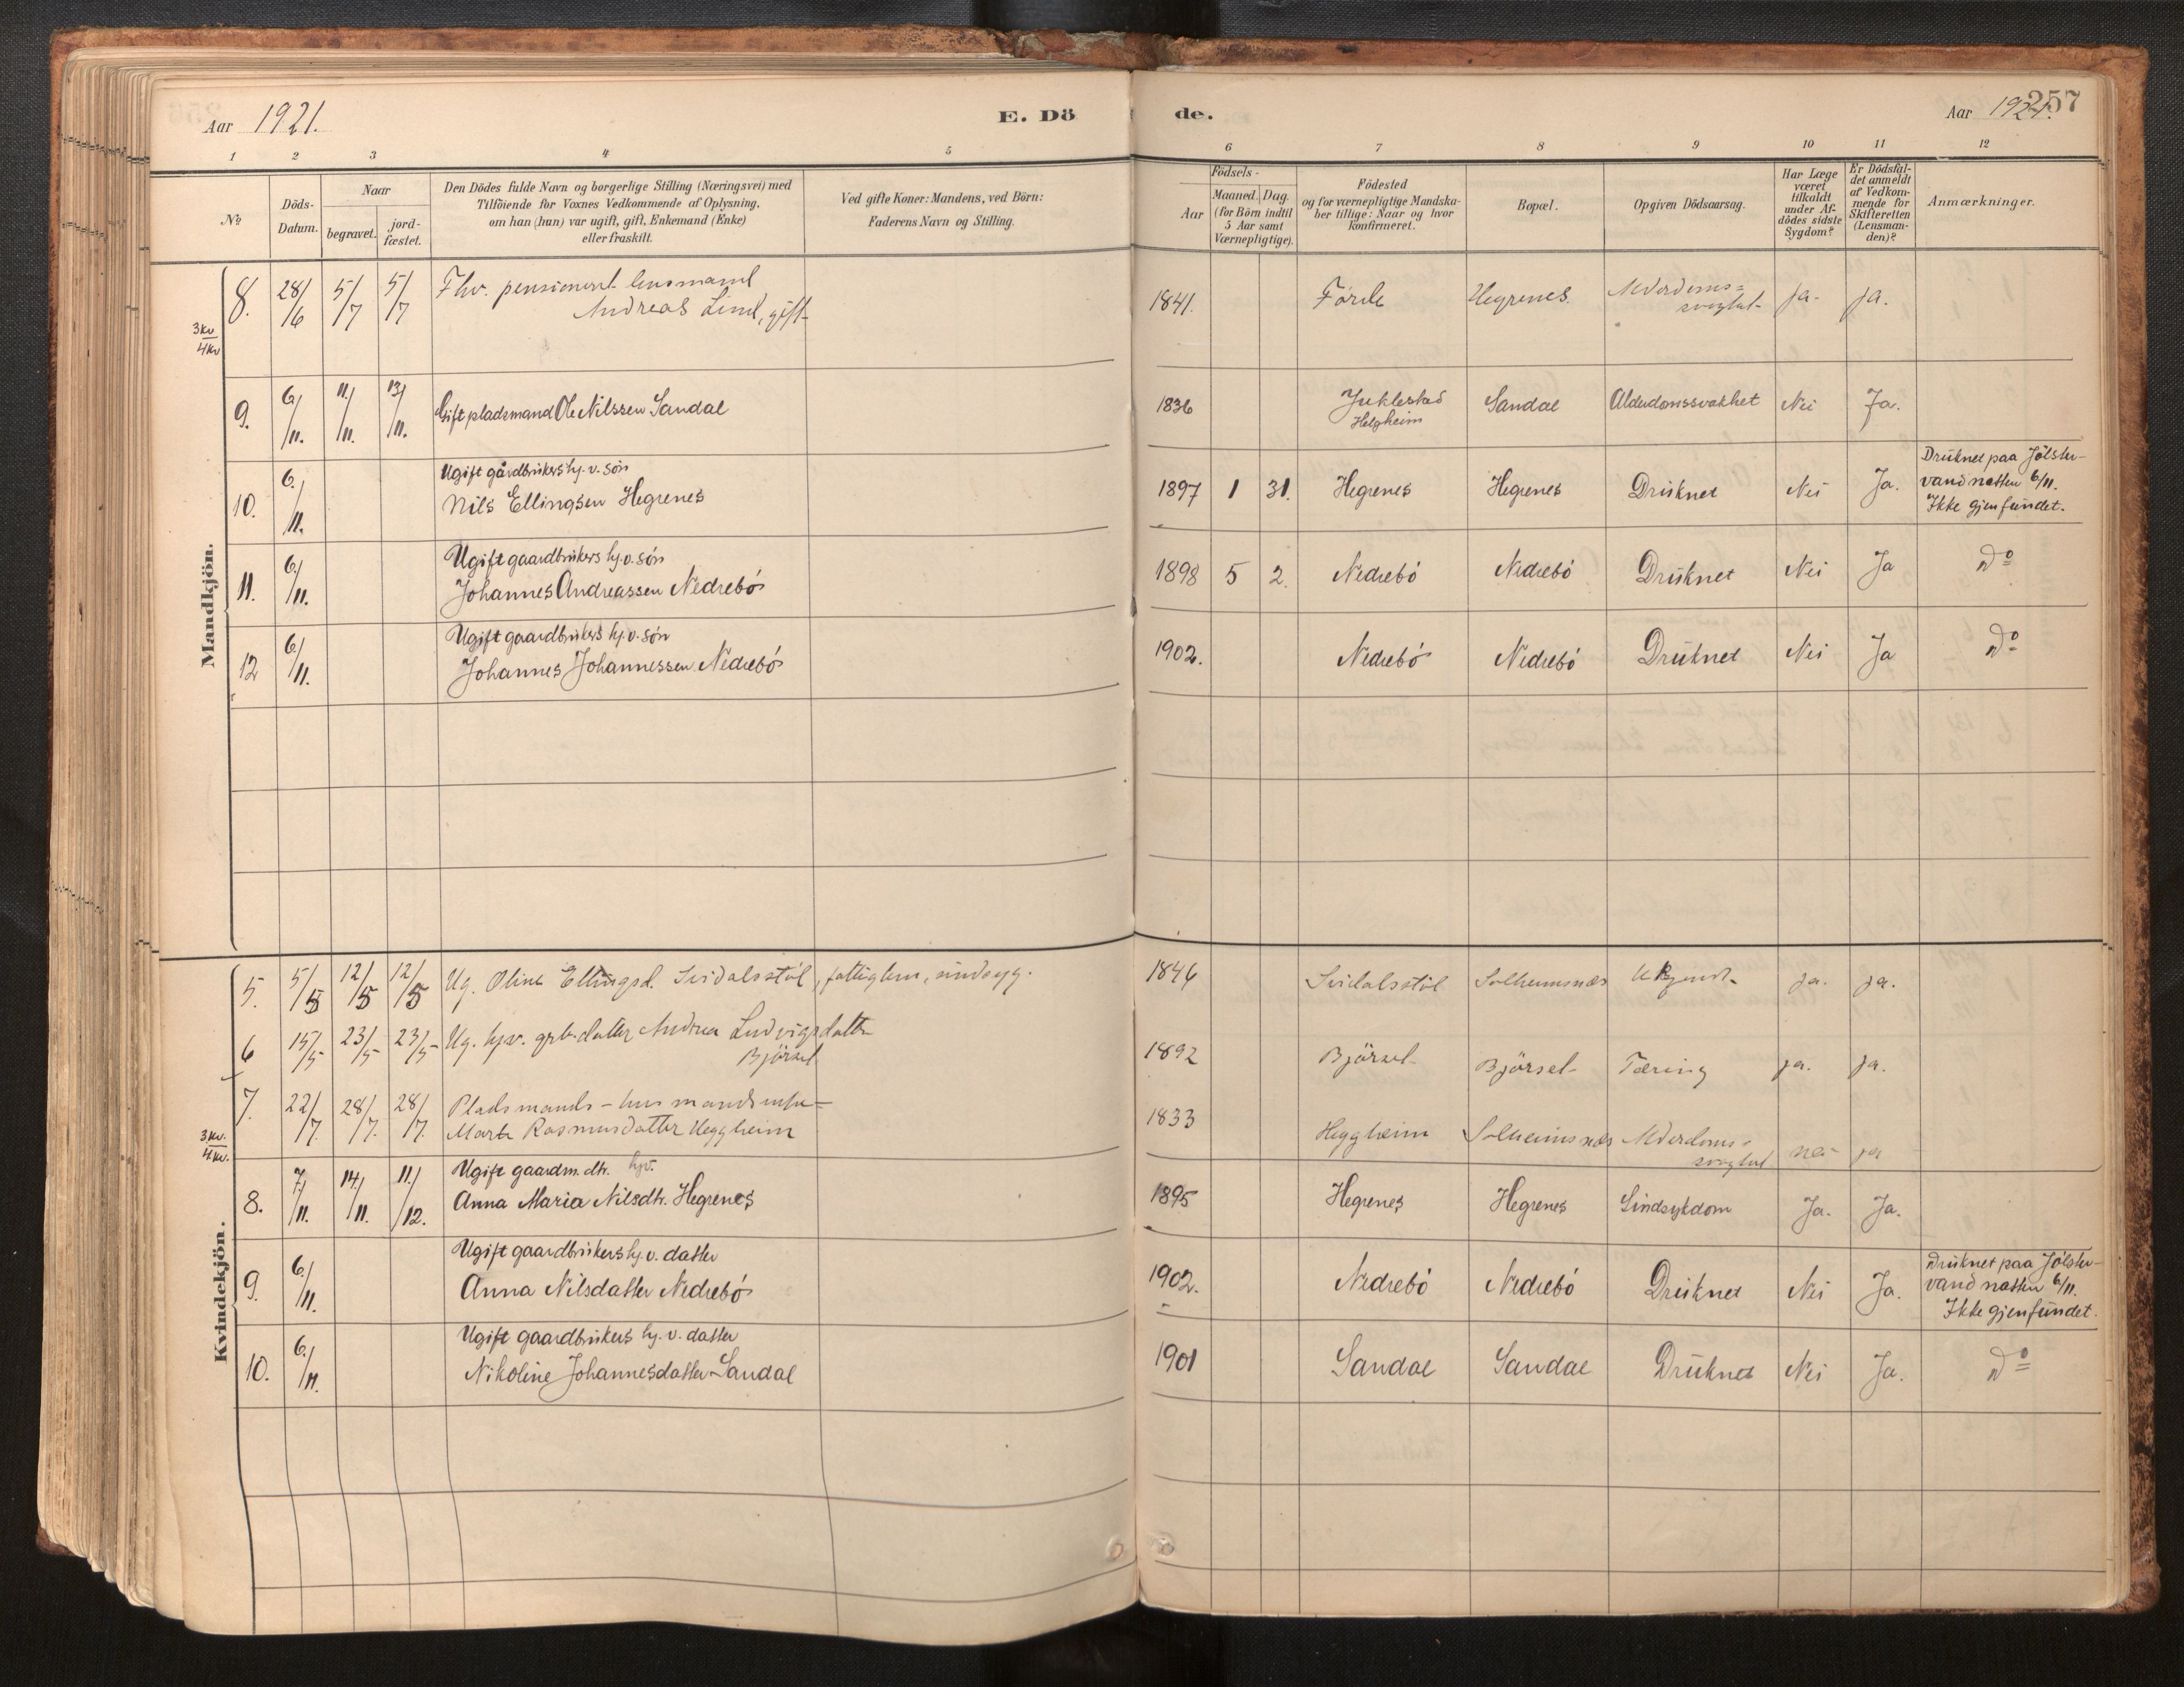 Aar 1921.
E. Dö
de.
Aar 1921.
257
1 2 3 4 5 6 7 8 9 10 11 12
№
Döds-Datum.
Naar
begravet.
jord-fæstet.
Den Dödes fulde Navn og borgerlige Stilling (Næringsvei) med
Tilföiende for Voxnes Vedkommende af Oplysning,
om han (hun) var ugift, gift, Enkemand (Enke)
eller fraskilt.
Ved gifte Koner: Mandens, ved Börn:
Faderens Navn og Stilling.
Födsels-
Aar
Maaned. Dag.
(for Börn indtil
5 Aar samt
Værnepligtige).
Födested
og for værnepligtige Mandska-
ber tillige: Naar og hvor
konfirmeret.
Bopæl.
Opgiven Dödsaarsag.
Har Læge
været
tilkaldt
under Af-
dödes sidste
Sygdom?
Er Dödsfal-
det anmeldt
af Vedkom-
mende for
Skifteretten
(Lensman-
den)?
Anmærkninger.
Mandkjön.
3 Kv
4 Kv
8. 28/6 5/7 5/7 Fhv. pensioneret lensmand
Andreas Lind, gift 1841. Förde Hegrenes. Alderdoms=
svaghet ja. ja.
9. 6/11. 11/11. 13/11. Gift pladsmand Ole Nilssen Sandal 1836 Juklestad
Helgheim Sandal Alderdomssvakhet Nei Ja.
10. 6/11. Ugift gårdbrukers hj. v. søn
Nils Ellingsen Hegrenes 1897 1 31. Hegrenes Hegrenes Druknet Nei Ja. Druknet paa Jölster-
vand natten 6/11.
Ikke gjenfundet.
11. 6/11. Ugift gaardbrukers hj. v. søn
Johannes Andreassen Nedrebó 1898 5 2. Nedrebó Nedrebó Druknet Nei Ja Do
12 6/11. Ugift gaardbrukers hj. v. søn
Johannes Johannessen Nedrebó 1902. Nedrebó Nedrebó Druknet Nei Ja Do
Kvindekjön.
5. 5/5 12/5 12/5 Ug. Oline Ellingsd. Svidalsstöl, fattiglem, sindsyg. 1846 Svidalsstöl Solheimsnæs Ukjendt ja. ja.
6 15/5 23/5 23/5 Ug. hjv. grb. datter Andrea Ludvigsdatter
Björsel 1892 Björsel Björsel Tæring ja. ja.
3 Kv.
4 Kv.
7. 22/7. 28/7. 28/7. Pladsmands-husmandsenke
Marta Rasmusdatter Heggheim 1833 Heggheim Solheimsnæs Alderdoms-
svaghet nei ja
8. 7/11. 14/11. 11/12. Ugift gaardm. dtr. hjv.
Anna Maria Nilsdtr. Hegrenes 1895 Hegrenes Hegrenes Sindsykdom Ja. Ja.
9. 6/11. Ugift gaardbrukers hj. v. datter
Anna Nilsdatter Nedrebó 1902. Nedrebó Nedrebó Druknet Nei Ja. Druknet paa Jölster-
vand natten 6/11.
Ikke gjenfundet.
10. 6/11. Ugift gaardbrukers hj. v. datter
Nikoline Johannesdatter Sandal 1901 Sandal Sandal Druknet Nei Ja. Do